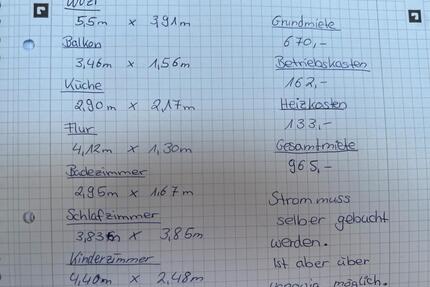 WoZi
5,5m x 3,91m
Balkon
3,46m x 1,56m
Küche
2,90m x 2,17m
Flur
4,12m x 1,30m
Badezimmer
2,95m x 1,67m
Schlafzimmer
3,83m x 3,85m
Kinderzimmer
4,40m x 2,48m
Grundmiete
670,-
Betriebskosten
162,-
Heizkosten
133,-
Gesamtmiete
965,-
Strom muss
selber gebucht
werden.
Ist aber über
möglich.